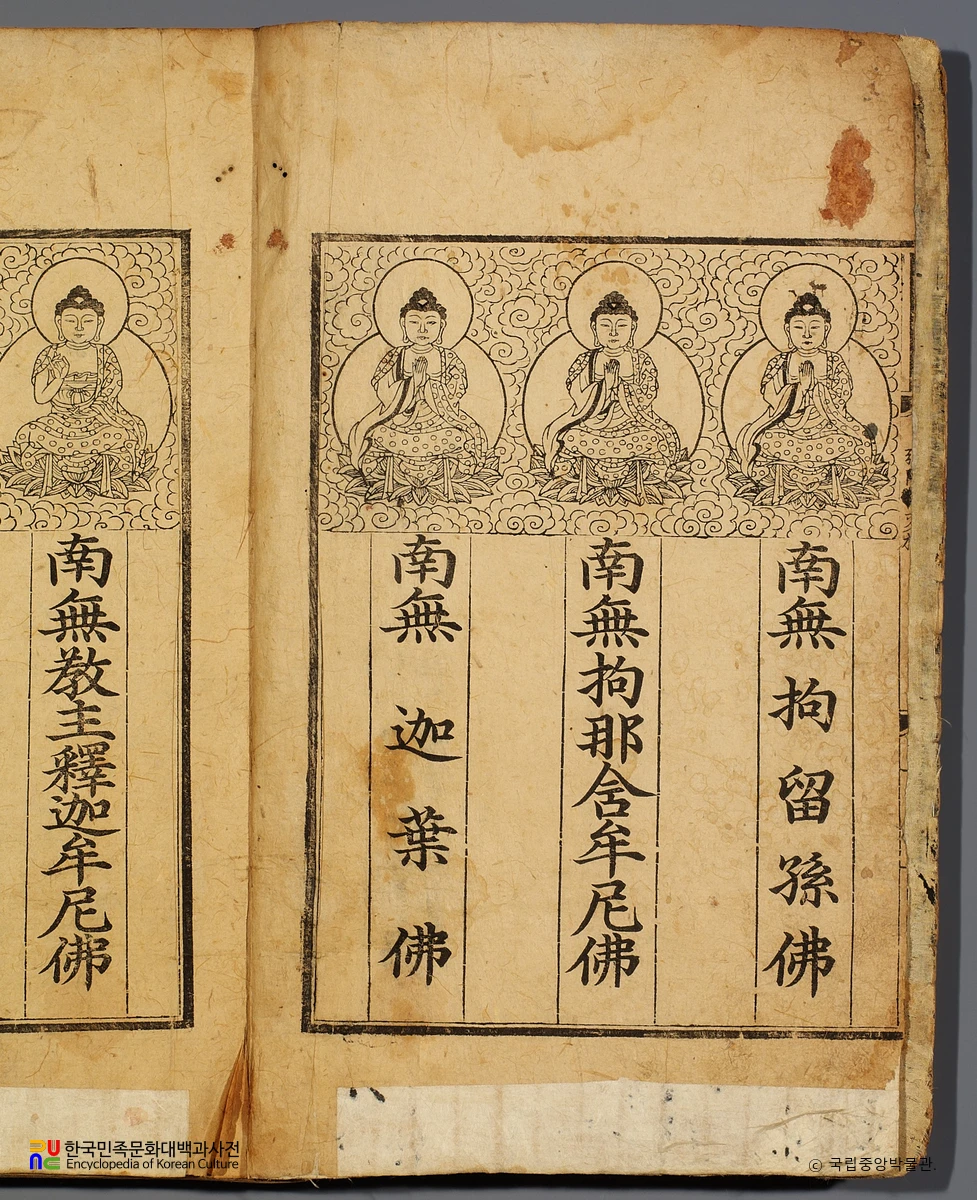 南無拘留孫佛
南無拘那舍牟尼佛
南無迦葉佛
南無教主釋迦牟尼佛
한국민족문화대백과사전
Encyclopedia of Korean Culture
© 국립중앙박물관.